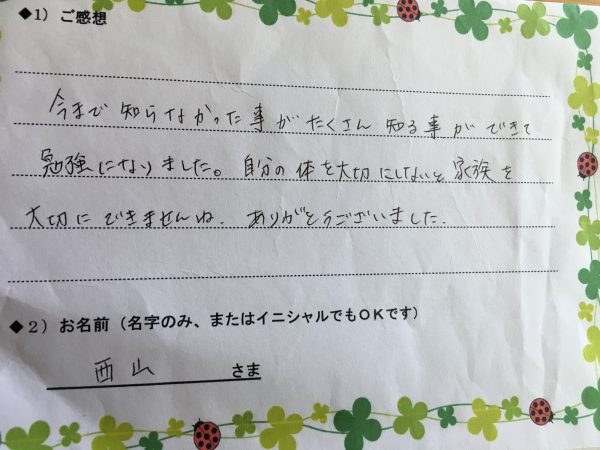 ◆1）ご感想
今まで知らなかった事がたくさん知る事ができて
勉強になりました。自分の体を大切にしないと家族を
大切にできませんね．ありがとうございました．
◆2）お名前（名字のみ、またはイニシャルでもOKです）
西山 さま